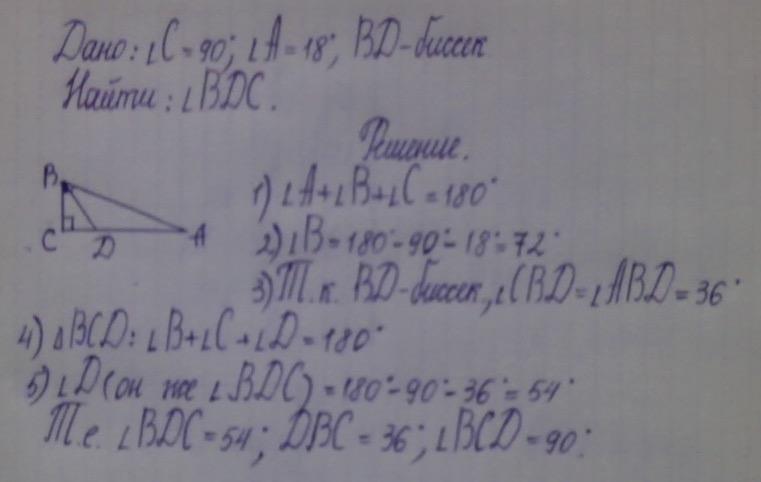 Дано: ∠C = 90°; ∠A = 18°; BD-биссек
Найти: ∠BDC.
Решение.
B
C D A
1) ∠A+∠B+∠C = 180°
2) ∠B = 180°-90°-18° = 72°
3) Т.к. BD-биссек, ∠CBD = ∠ABD = 36°
4) ΔBCD: ∠B+∠C+∠D = 180°
5) ∠D (он же ∠BDC) = 180°-90°-36° = 54°
Т.е. ∠BDC = 54°; DBC = 36°; ∠BCD = 90°.